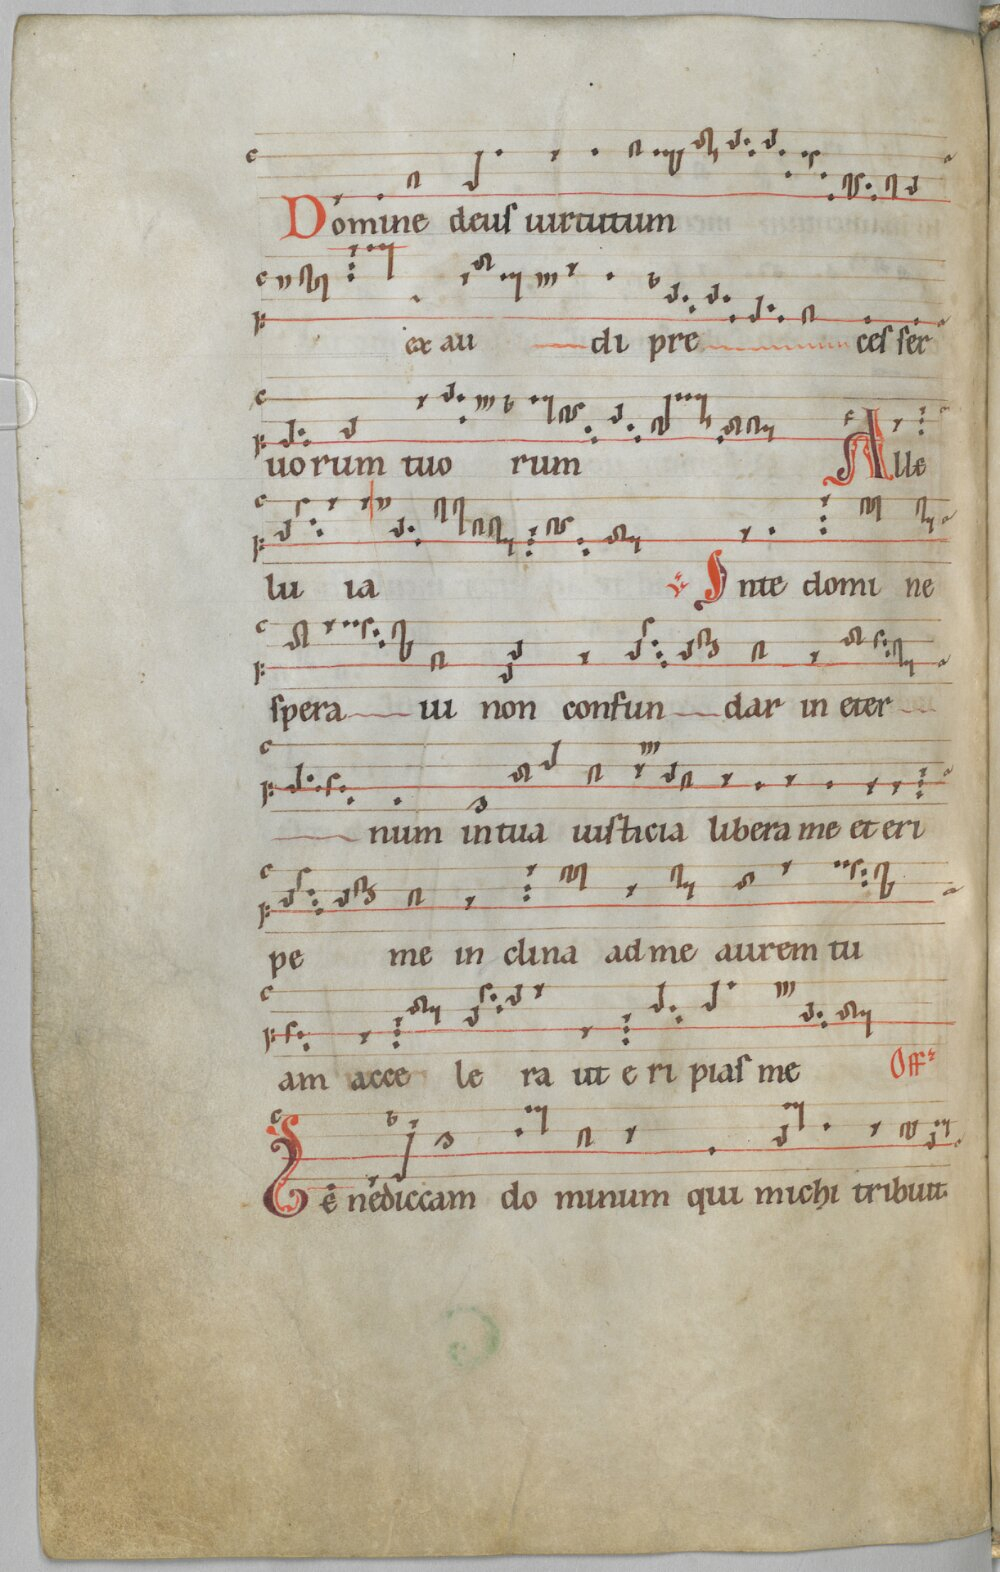 Domine deus uirtutum
ex au di pre ces ser
uorum tuo rum Alle
lu ia ℣ Inte domi ne
spera ui non confun dar in eter
num intua iusticia libera me et eri
pe me in clina ad me aurem tu
am acce le ra ut e ri pias me Off
Be nediccam do minum qui michi tribuit